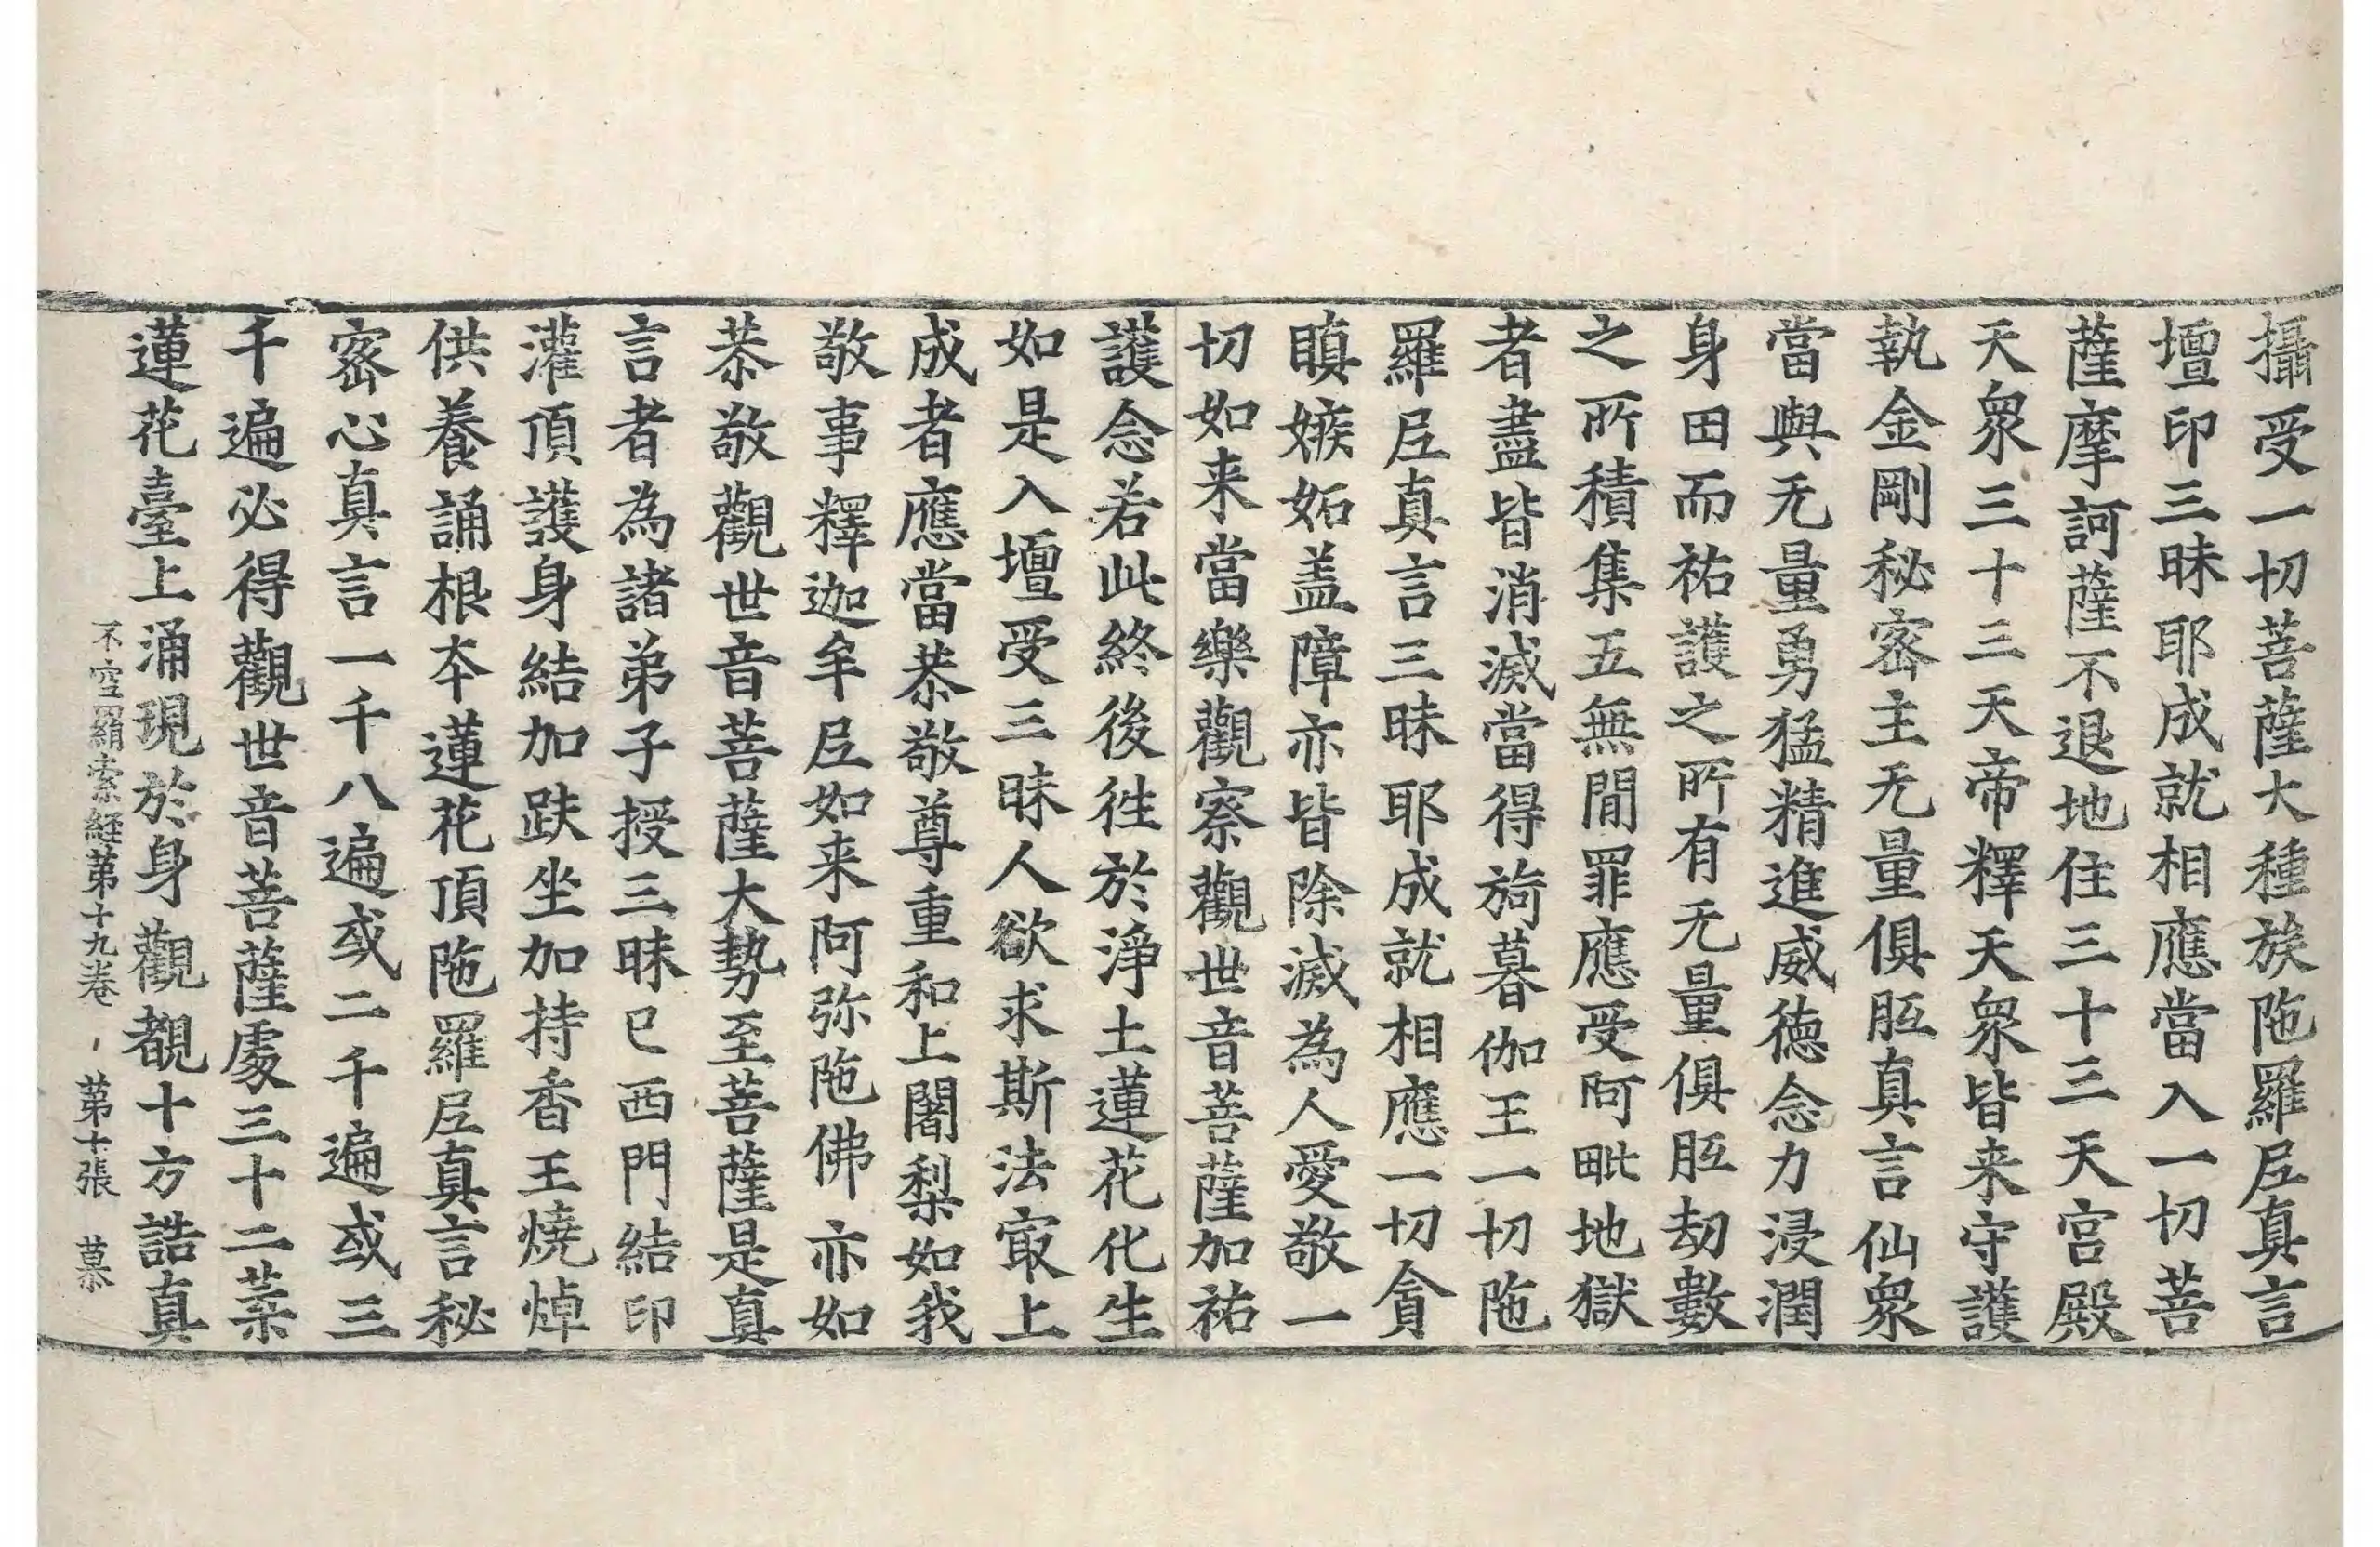 攝受一切菩薩大種族陁羅𡰱真言
壇印三昧耶成就相應當入一切菩
薩摩訶薩不退地住三十三天宫殿
天衆三十三天帝釋天衆皆来守護
執金剛秘密主无量俱胝真言仙衆
當與无量勇猛精進威德念力浸潤
身田而祐護之所有无量俱胝劫數
之所積集五無閒罪應受阿毗地獄
者盡皆消滅當得旖暮伽王一切陁
羅𡰱真言三昧耶成就相應一切貪
瞋嫉妬盖障亦皆除滅為人愛敬一
切如来當樂觀察觀世音菩薩加祐
護念若此終後徃於淨土蓮花化生
如是入壇受三昧人欲求斯法㝡上
成者應當恭敬尊重和上闍梨如我
敬事釋迦牟𡰱如来阿弥陁佛亦如
恭敬觀世音菩薩大勢至菩薩是真
言者為諸弟子授三昧已西門結印
灌頂護身結加趺坐加持香王燒焯
供養誦根夲蓮花頂陁羅𡰱真言秘
密心真言一千八遍或二千遍或三
千遍必得觀世音菩薩處三十二葉
蓮花臺上涌現於身觀覩十方誥真
不空羂索經第十九卷 第十張 慕